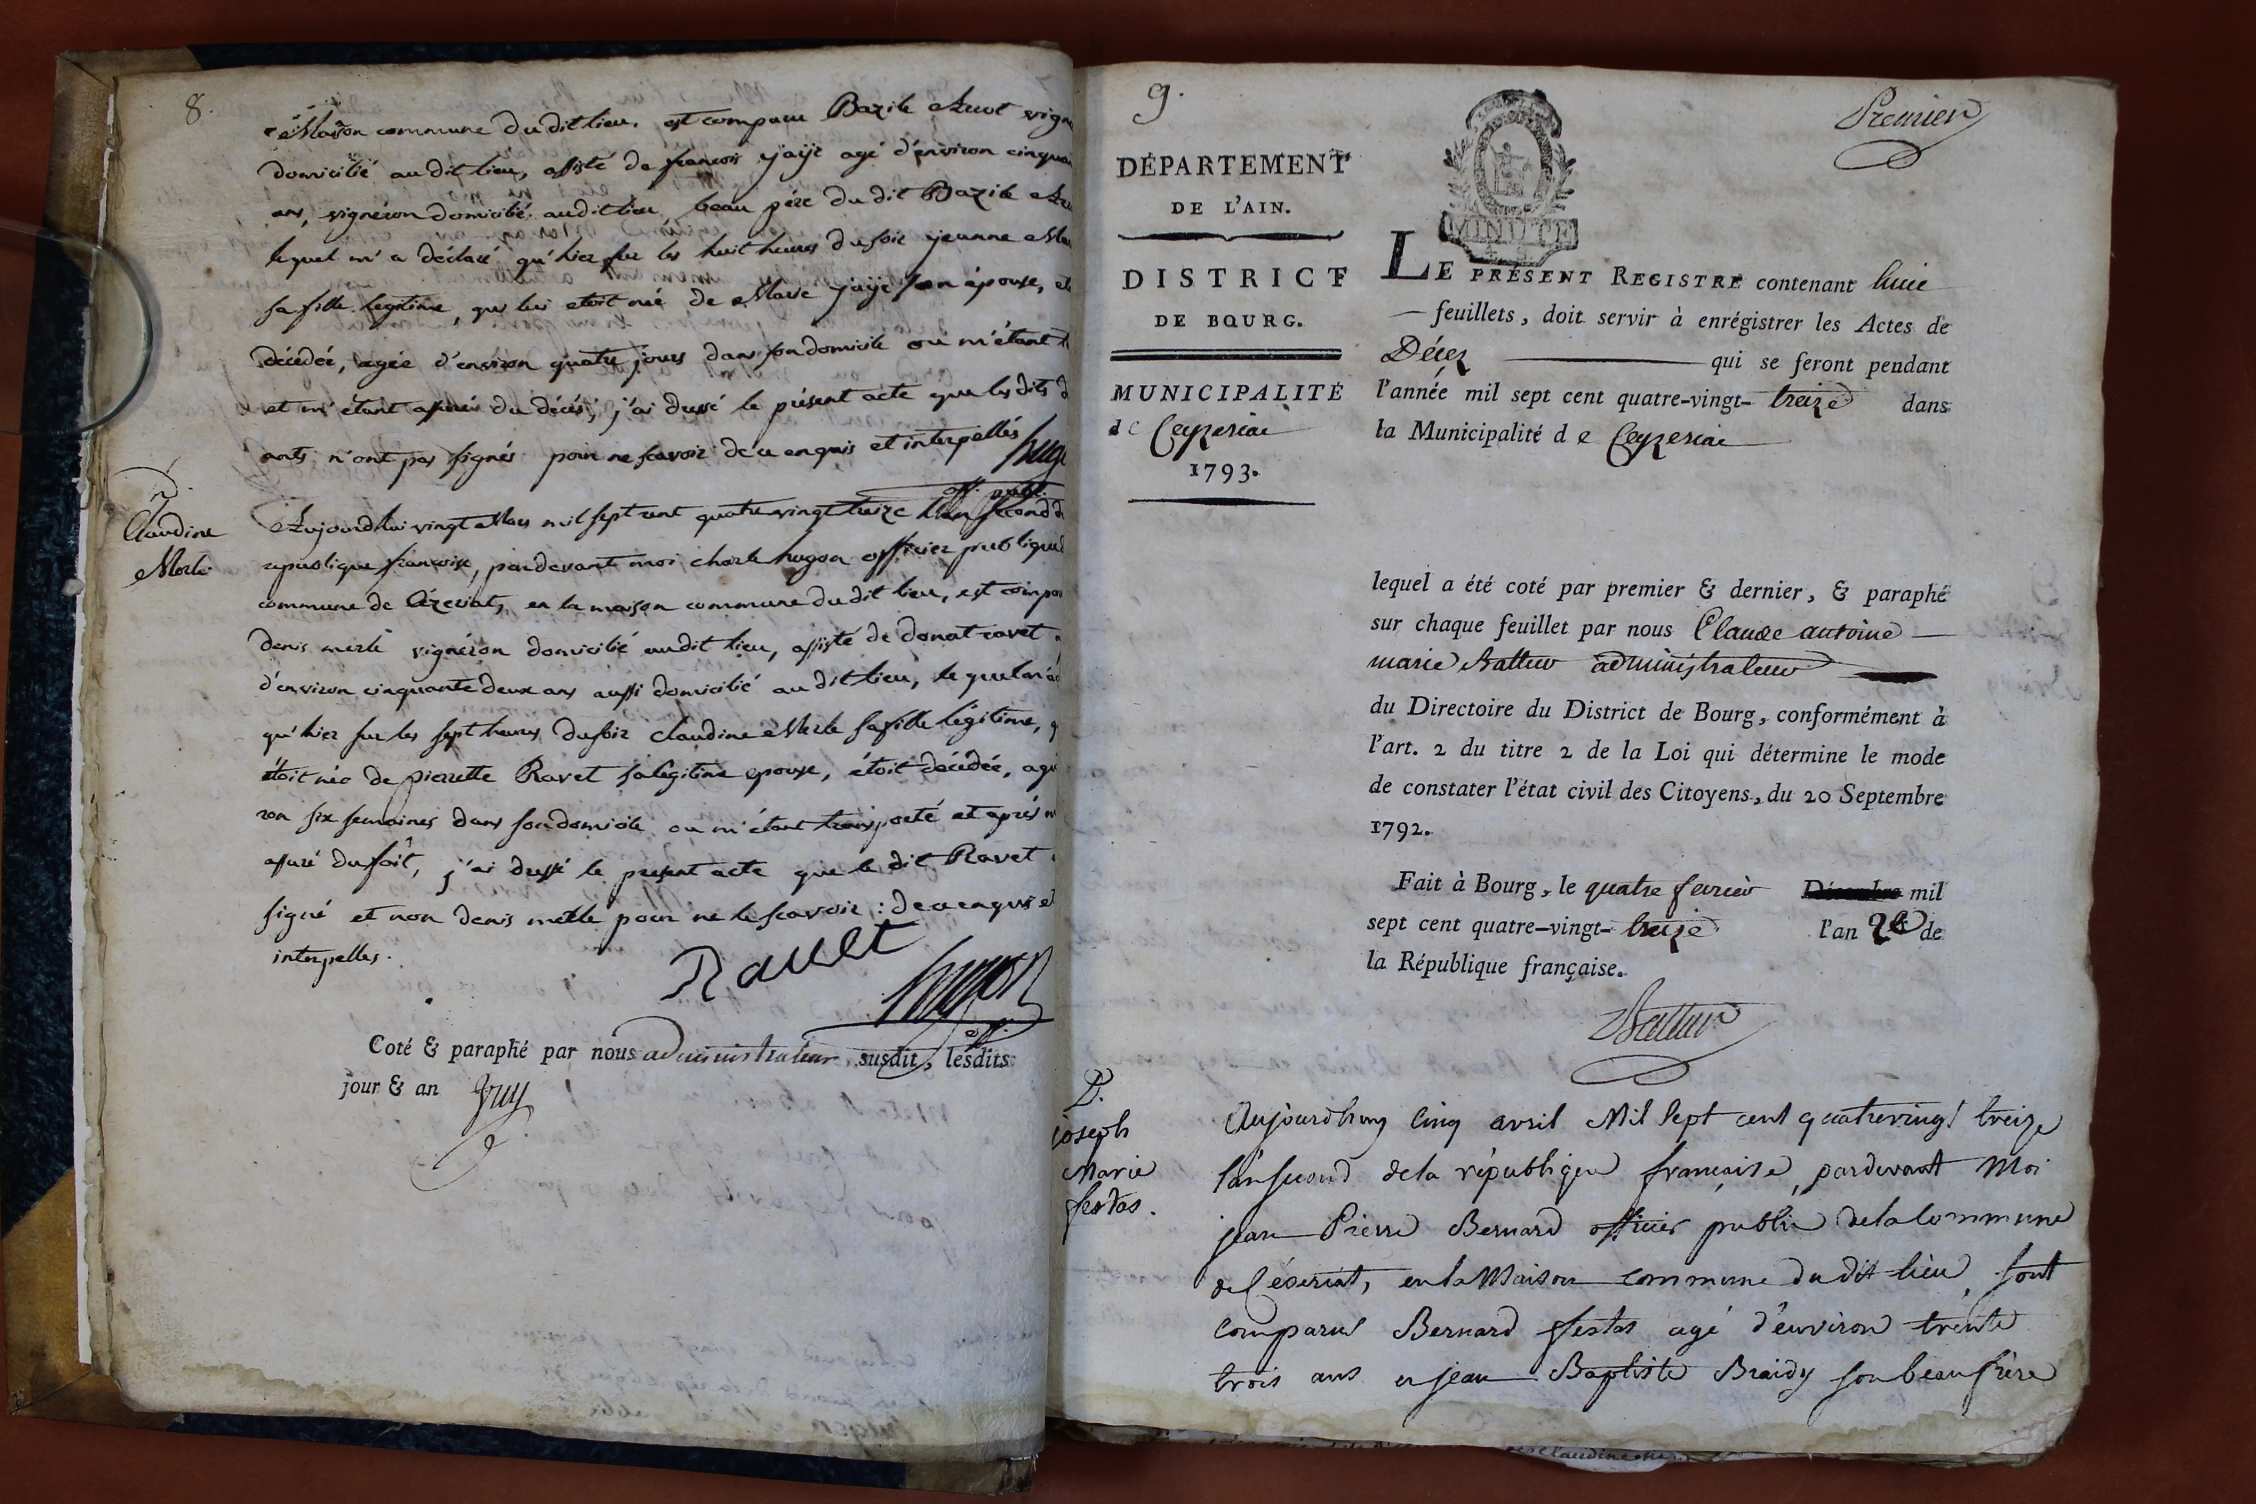 8.
Maison commune du dit lieu, est comparu Bazile
domicilié audit lieu, assisté de francois jayr agé d'environ
ans, vignéron domicilié audit lieu, beau pére du dit Bazile
lequel m'a déclaré qu'hier sur les huit heures du soir jeanne
sa fille légitime, qui lui etoit née de Marie jayr son épouse,
décédée, agée d'environ quatre jours dans son domicile ou m'étant
et m'étant assuré du décés, j'ai dressé le présent acte que les dits
ants n'ont pas signés pour ne scavoir de ce enquis et interpellés
off. publ.
D.
Claudine
Merle
Aujourd'hui vingt Mars mil sept cent quatre vingt treize l'an second
republique francoise, pardevant moi charle hugon officier publique
commune de Cézeriat, en la maison commune du dit lieu, est
denis merle vignéron domicilié audit lieu, assisté de donat ravet
d'environ cinquante deux ans aussi domicilié au dit lieu, lequel
qu'hier sur les sept heures du soir claudine Merle sa fille légitime,
étoit née de pierrette Ravet sa légitime epouse, étoit décédée,
ron six semaines dans son domicile ou m'étant transporté et aprés
assuré du fait, j'ai dressé le present acte que le dit Ravet
signé et non denis merle pour ne le scavoir : de ce enquis et
interpelles.
Ravet
hugon
Coté & paraphé par nous administrateur susdit, lesdits
jour & an
9.
Premier
DÉPARTEMENT
DE L'AIN.
DISTRICT
DE BOURG.
MUNICIPALITÉ
de Ceyzeriat
1793.
MINUTE
LE PRÉSENT REGISTRE contenant huit
feuillets, doit servir à enrégistrer les Actes de
Décez qui se feront pendant
l'année mil sept cent quatre-vingt-treize dans
la Municipalité de Ceyzeriat
lequel a été coté par premier & dernier, & paraphé
sur chaque feuillet par nous Claude antoine
marie administrateur
du Directoire du District de Bourg, conformément à
l'art. 2 du titre 2 de la Loi qui détermine le mode
de constater l'état civil des Citoyens, du 20 Septembre
1792.
Fait à Bourg, le quatre fevrier Décembre mil
sept cent quatre-vingt-treize l'an 2e de
la République française.
D.
joseph
Marie
festas.
Aujourdhuy cinq avril Mil sept cent quatrevingt treize
l'an second de la république francaise, pardevant Moi
jean Pierre Bernard officier public de la commune
de Cézeriat, en la Maison commune du dit lieu, sont
comparus Bernard festas agé d'environ trente
trois ans et jean Baptiste Braidy son beau frère